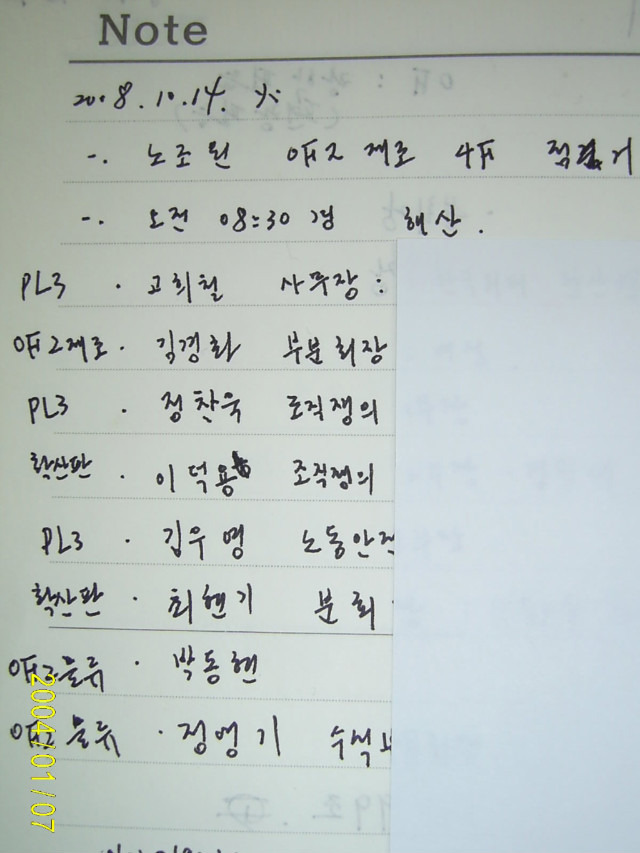 Note
2008.10.14. 火
-. 노조원 OH2 제조 4F 점거
-. 오전 08:30 경 해산.
PL3 · 고희철 사무장 :
OH2제조 · 김경화 부분회장
PL3 · 정찬욱 조직쟁의
확산판 · 이덕용 조직쟁의
PL3 · 김우영 노동안전
확산판 · 최현기 분회
물류 · 박동현
물류 · 정영기 수석
2004/01/07